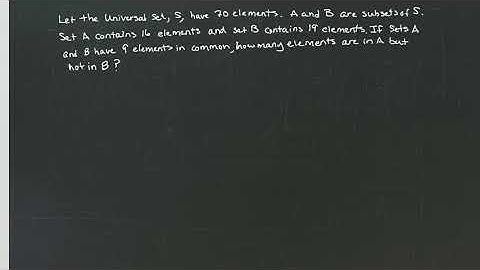 Let the Universal Set, S, have 70 elements. A and B are subsets of S.
Set A contains 16 elements and set B contains 19 elements. If Sets A
and B have 9 elements in common, how many elements are in A but
not in B?